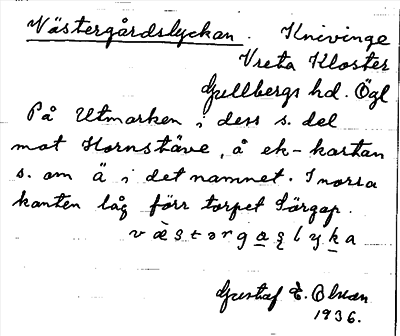 Västergårdslyckan. Knivinge
Vreta Kloster
Gullbergs hd. Ögl
På Utmarken i dess s. del
mot Hornstäve, å ek-kartan
s. om Ä i det namnet. I norra
kanten låg förr torpet Särgap.
væstərgaslyka
Gustaf E. Olson
1936.